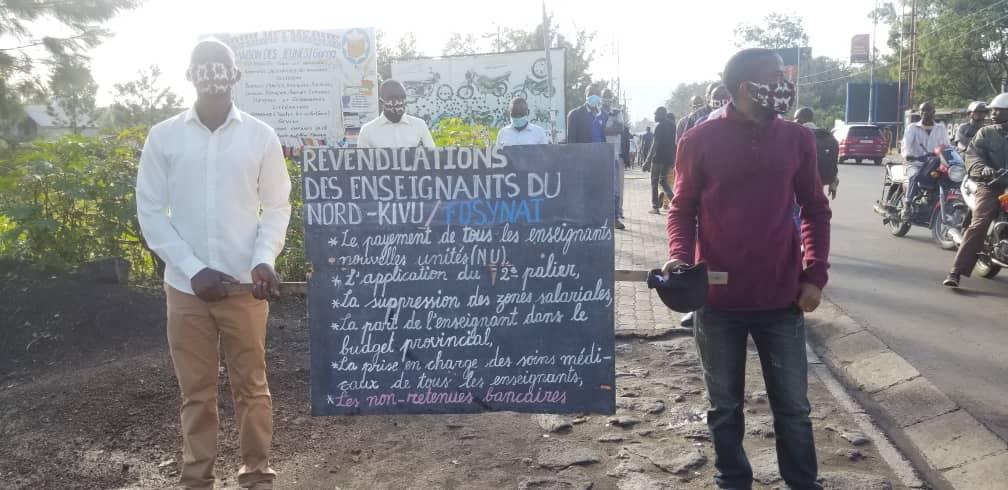 MAISON DES JEUNES/Goma
REVENDICATIONS
DES ENSEIGNANTS DU
NORD-KIVU/FOSYNAT
* Le payement de tous les enseignants
nouvelles unités (N.U).
* L'application du 2e palier,
* La suppression des zones salariales,
* La part de l'enseignant dans le
budget provincial,
* La prise en charge des soins médi-
caux de tous les enseignants,
* Les non-retenues bancaires